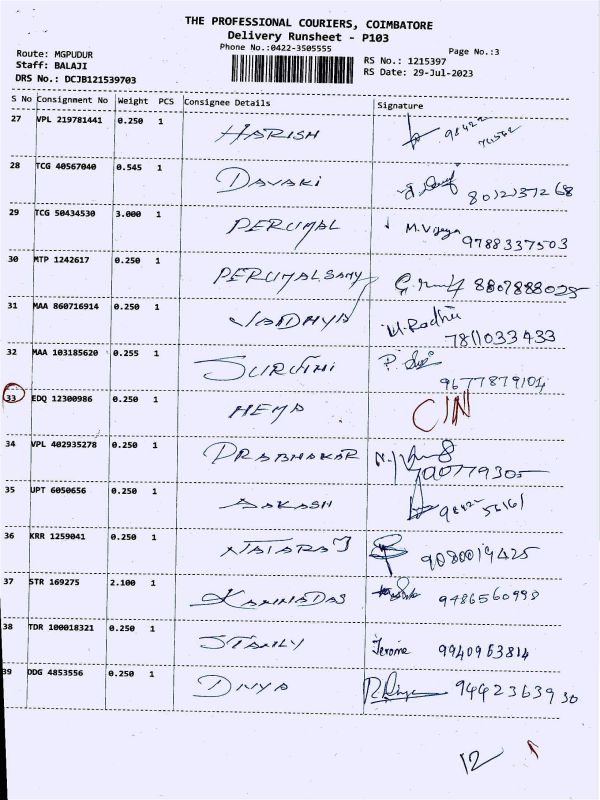 THE PROFESSIONAL COURIERS, COIMBATORE
Delivery Runsheet - P103
Phone No.:0422-3505555
Page No.:3
Route: MGPUDUR
Staff: BALAJI
DRS No.: DCJB121539703
RS No.: 1215397
RS Date: 29-Jul-2023
S No Consignment No Weight PCS Consignee Details Signature
27 VPL 219781441 0.250 1 HARISH 98422
28 TCG 40567040 0.545 1 DAVAKI 8012137268
29 TCG 50434530 3.000 1 PERUMAL M. Vijaya 9788337503
30 MTP 1242617 0.250 1 PERUMALSAMY 8807888025
31 MAA 860716914 0.250 1 M. Radhu 7811033433
32 MAA 103185620 0.255 1 SURUTHI 9677879104
33 EDQ 12300986 0.250 1 HEMA CIN
34 VPL 402935278 0.250 1 PRABHAKAR
35 UPT 6050656 0.250 1 AAKASH 98422 56161
36 KRR 1259041 0.250 1 NATARAJ 9080019425
37 STR 169275 2.100 1 KANNADAS 9486560998
38 TDR 100018321 0.250 1 STANLY Jerome 9940953814
39 DDG 4853556 0.250 1 DIVYA 9442363930
12